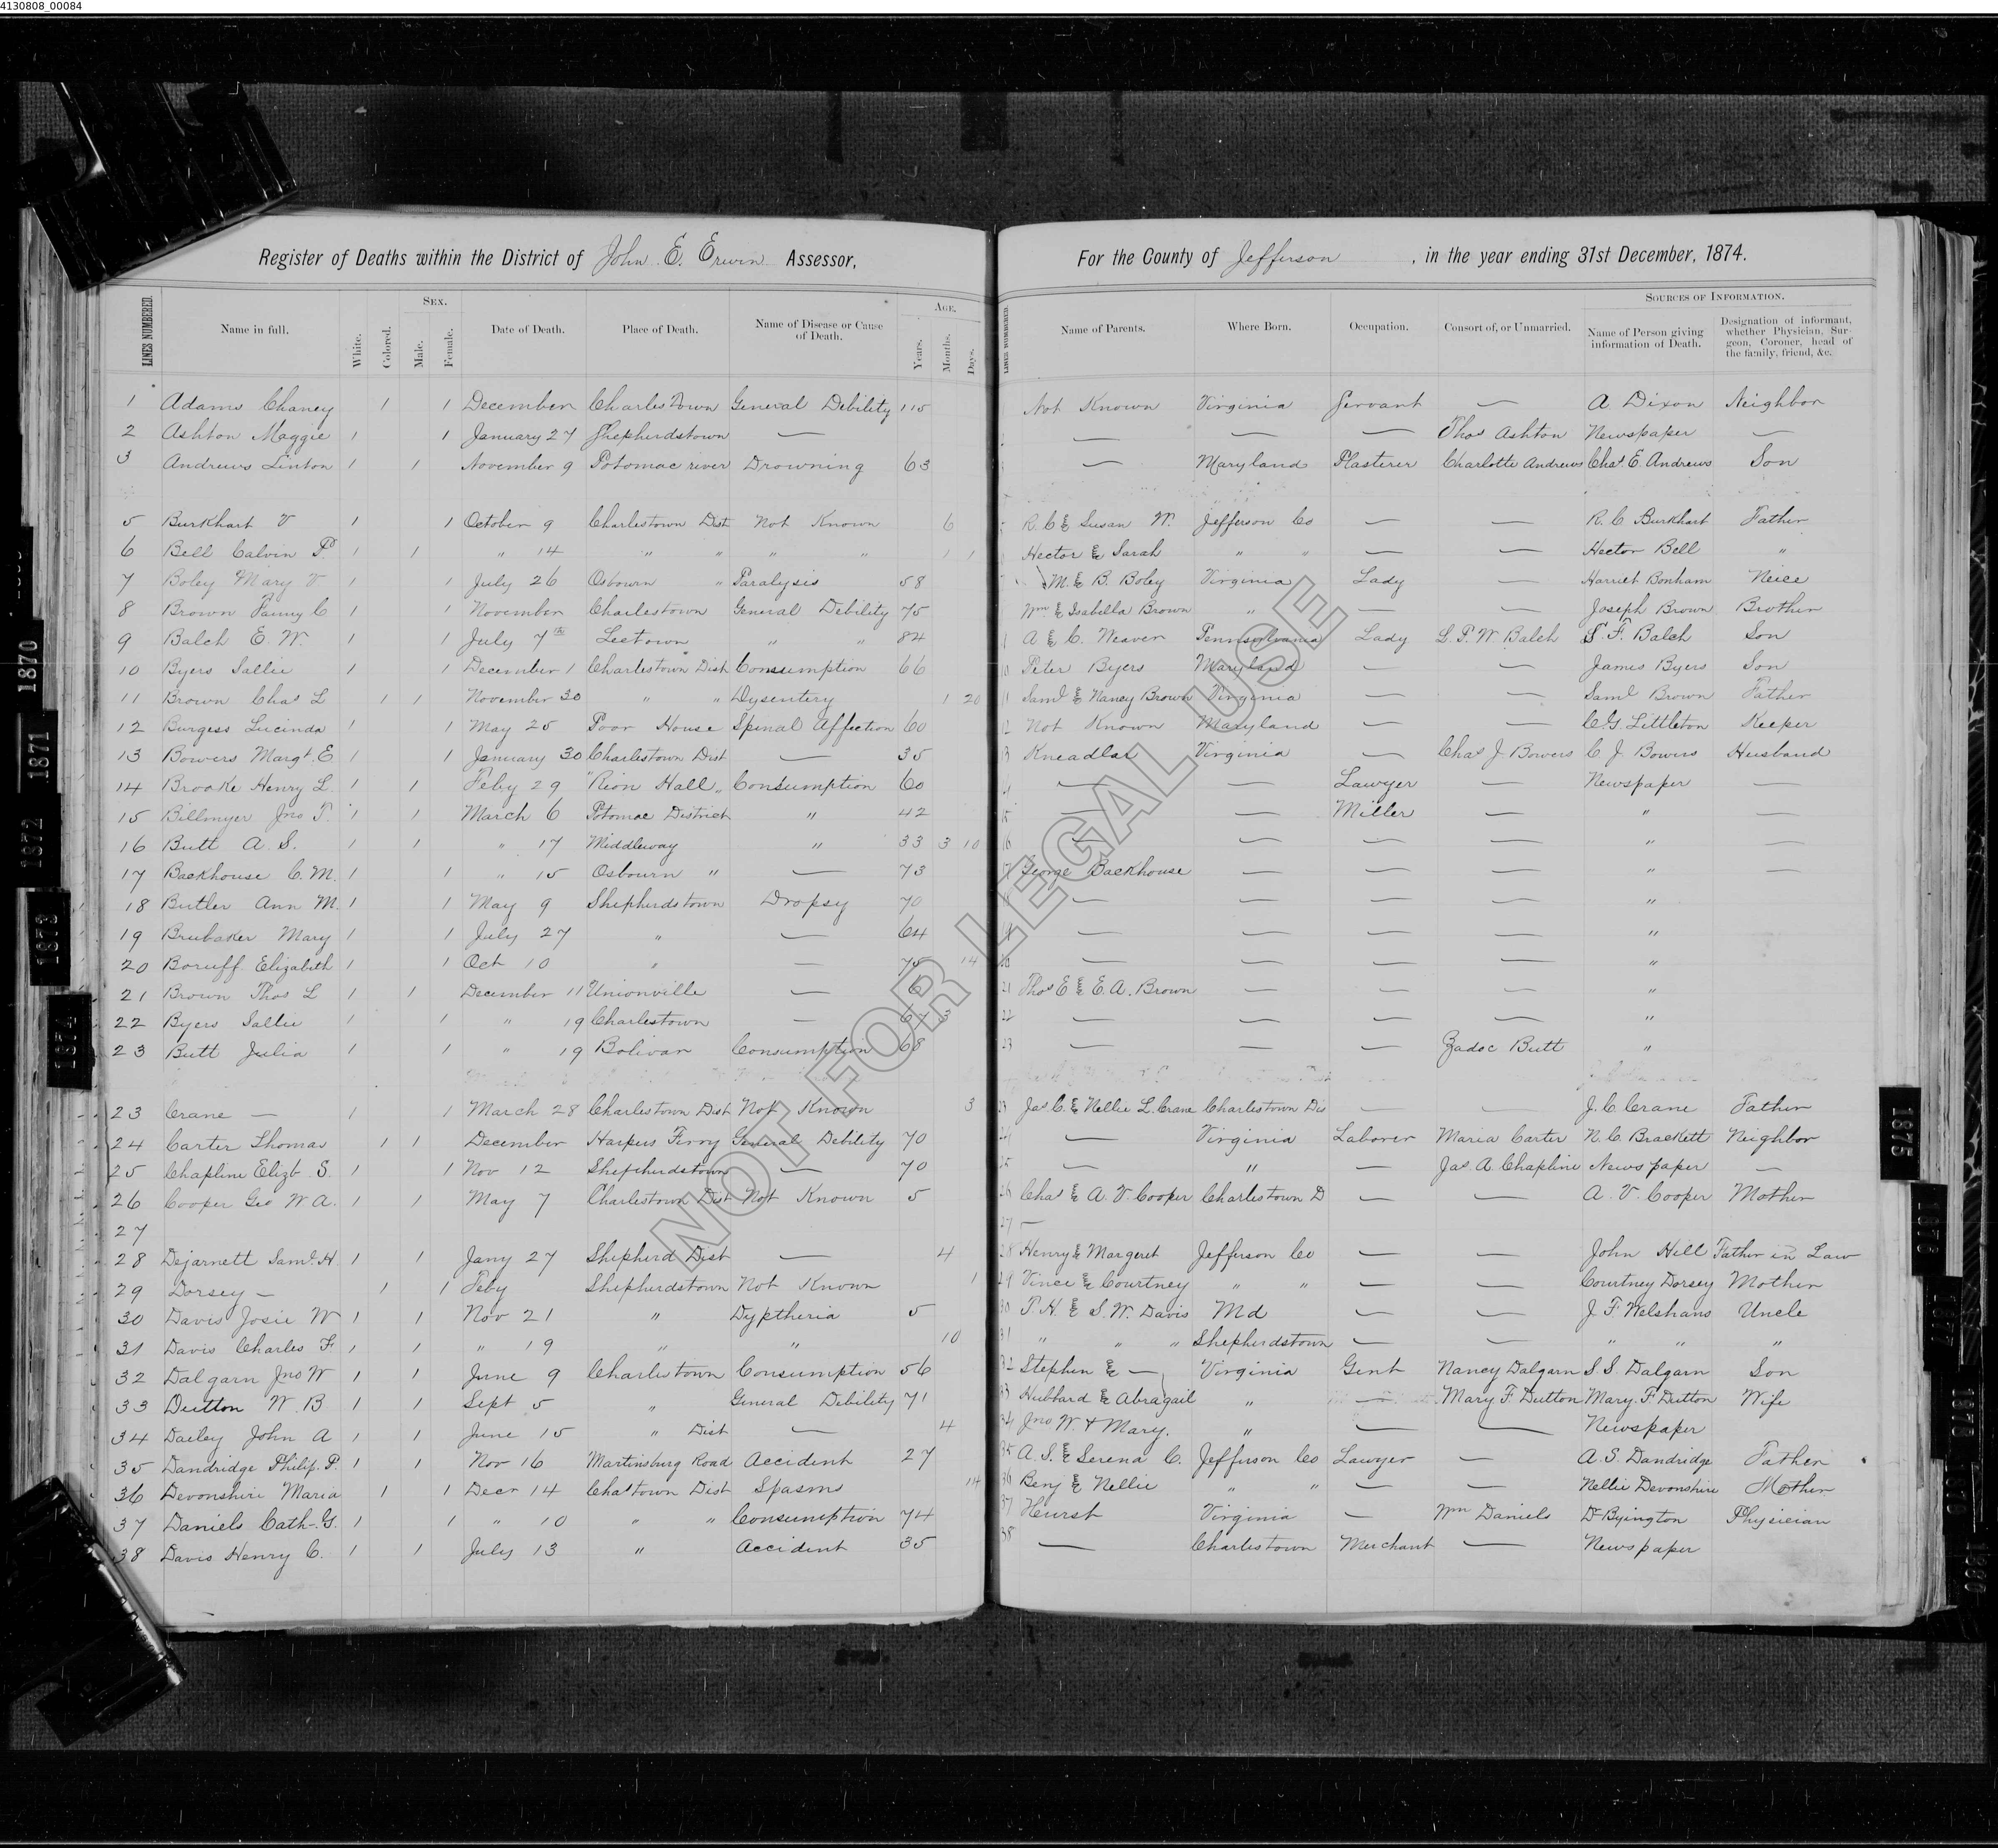 4130808_00084
Register of Deaths within the District of John E. Erwin Assessor,
For the County of Jefferson , in the year ending 31st December, 1874.
LINES NUMBERED. Name in full. White. Colored. SEX. Male. Female. Date of Death. Place of Death. Name of Disease or Cause of Death. AGE. Years. Months. Days.
LINES NUMBERED. Name of Parents. Where Born. Occupation. Consort of, or Unmarried. SOURCES OF INFORMATION. Name of Person giving information of Death. Designation of informant, whether Physician, Surgeon, Coroner, head of the family, friend, &c.
1 Adams Chaney 1 1 December Charles Town General Debility 115 Not Known Virginia Servant — A Dixon Neighbor
2 Ashton Maggie 1 1 January 27 Shepherdstown — — — — Thos Ashton Newspaper —
3 Andrews Linton 1 1 November 9 Potomac river Drowning 63 — Maryland Plasterer Charlotte Andrews Chas. E. Andrews Son
5 Burkhart V 1 1 October 9 Charlestown Dist Not Known 6 R. C & Susan W. Jefferson Co — — R. C Burkhart Father
6 Bell Calvin P 1 1 " 14 " " " " 1 1 Hector & Sarah " " — — Hector Bell "
7 Boley Mary V 1 1 July 26 Osbourn " Paralysis 58 M. & B. Boley Virginia Lady — Harriet Bonham Neice
8 Brown Fanny C 1 1 November Charlestown General Debility 75 Wm & Isabella Brown " — — Joseph Brown Brother
9 Balch E. W. 1 1 July 7th Leetown " " 84 A & C. Weaver Pennsylvania Lady L. P. W. Balch S. F. Balch Son
10 Byers Sallie 1 1 December 1 Charlestown Dist Consumption 66 10 Peter Byers Maryland — — James Byers Son
11 Brown Chas L 1 1 November 30 " " Dysentery 1 20 11 Saml & Nancy Brown Virginia — — Saml Brown Father
12 Burgess Lucinda 1 May 25 Poor House Spinal Affection 60 12 Not Known Maryland — — C. G. Littleton Keeper
13 Bowers Margt. E 1 1 January 30 Charlestown Dist — 35 13 Kneadlar Virginia — Chas J. Bowers C J. Bowers Husband
14 Brooke Henry L. 1 1 Feby 29 "Rion Hall" Consumption 60 — — Lawyer — Newspaper —
15 Billmyer Jno T. 1 1 March 6 Potomac District " 42 15 — — Miller — " —
16 Butt A. S. 1 1 " 17 Middleway " 33 3 10 16 — — — — " —
17 Backhouse C. M. 1 1 " 15 Osbourn " — 73 17 George Backhouse — — — " —
18 Butler Ann M. 1 1 May 9 Shepherdstown Dropsy 70 — — — — "
19 Brubaker Mary 1 1 July 27 " — 64 — — — — "
20 Boruff Elizabeth 1 1 Oct 10 " — 75 14 20 — — — — "
21 Brown Thos L 1 1 December 11 Unionville — 6 21 Thos E & E. A. Brown — — — "
22 Byers Sallie 1 1 " 19 Charlestown — 67 3 22 — — — — "
23 Butt Julia 1 1 " 19 Bolivar Consumption 68 23 — — — Zadoc Butt "
23 Crane — 1 1 March 28 Charlestown Dist Not Known 3 23 Jas. C. & Nellie L. Crane Charlestown Dis — — J. C. Crane Father
24 Carter Thomas 1 1 December Harpers Ferry General Debility 70 24 — Virginia Laborer Maria Carter N. C. Brackett Neighbor
25 Chapline Elizb. S. 1 1 Nov 12 Shepherdstown — 70 25 — " — Jas. A. Chapline Newspaper —
26 Cooper Geo W A. 1 1 May 7 Charlestown Dist Not Known 5 26 Chas & A. V. Cooper Charlestown D — — A. V. Cooper Mother
27 27 —
28 Dejarnett Saml. H. 1 1 Jany 27 Shepherd Dist — 4 28 Henry & Margeret Jefferson Co — — John Hill Father in Law
29 Dorsey — 1 1 Feby Shepherdstown Not Known 1 29 Vince & Courtney " " — — Courtney Dorsey Mother
30 Davis Josie W 1 1 Nov 21 " Dyptheria 5 30 T. H. & S. W. Davis Md — — J. F. Welshans Uncle
31 Davis Charles F 1 1 " 19 " " 10 31 " " " Shepherdstown — — " " "
32 Dalgarn Jno W 1 1 June 9 Charlestown Consumption 56 32 Stephen & — Virginia Gent Nancy Dalgarn S. S. Dalgarn Son
33 Dutton W. B 1 1 Sept 5 " General Debility 71 33 Hubbard & Abragail " — Mary F Dutton Mary. F. Dutton Wife
34 Dailey John A 1 1 June 15 " Dist — 4 34 Jno W. & Mary. " — — Newspaper
35 Dandridge Philip. P. 1 1 Nov 16 Martinsburg Road Accident 27 35 A. S. & Serena C. Jefferson Co Lawyer — A. S. Dandridge Father
36 Devonshire Maria 1 1 Decr 14 Chastown Dist Spasms 14 36 Benj & Nellie " " — — Nellie Devonshire Mother
37 Daniels Cath. G. 1 1 " 10 " " Consumption 74 37 Hurst Virginia — Wm Daniels Dr Byington Physician
38 Davis Henry C. 1 1 July 13 " Accident 35 38 — Charlestown Merchant — Newspaper
NOT FOR LEGAL USE
1870
1871
1872
1873
1874
1875
1876
1877
1878
1880